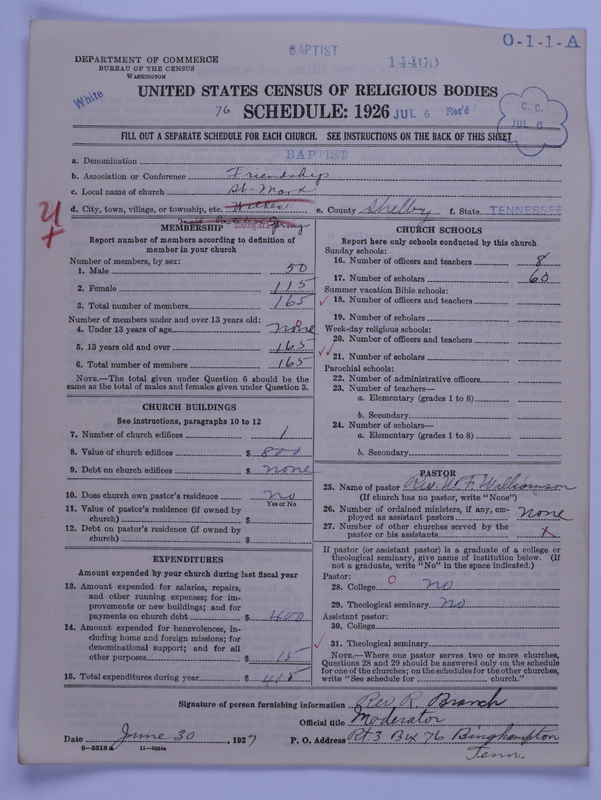 BAPTIST
O-1-1-A
14400
DEPARTMENT OF COMMERCE
BUREAU OF THE CENSUS
WASHINGTON
White
UNITED STATES CENSUS OF RELIGIOUS BODIES
76 SCHEDULE: 1926 JUL 6 Rec'd
C. C.
JUL 6
FILL OUT A SEPARATE SCHEDULE FOR EACH CHURCH. SEE INSTRUCTIONS ON THE BACK OF THIS SHEET
a. Denomination BAPTIST
b. Association or Conference Friendship
c. Local name of church St. Mark
d. City, town, village, or township, etc. e. County Shelby f. State TENNESSEE
Spring
MEMBERSHIP
Report number of members according to definition of member in your church
Number of members, by sex:
1. Male 50
2. Female 115
3. Total number of members 165
Number of members under and over 13 years old:
4. Under 13 years of age none
5. 13 years old and over 165
6. Total number of members 165
NOTE.—The total given under Question 6 should be the same as the total of males and females given under Question 3.
CHURCH BUILDINGS
See instructions, paragraphs 10 to 12
7. Number of church edifices 1
8. Value of church edifices $ 800
9. Debt on church edifices $ none
10. Does church own pastor's residence no
Yes or No
11. Value of pastor's residence (if owned by church) $
12. Debt on pastor's residence (if owned by church) $
EXPENDITURES
Amount expended by your church during last fiscal year
13. Amount expended for salaries, repairs, and other running expenses; for improvements or new buildings; and for payments on church debt $ 400
14. Amount expended for benevolences, including home and foreign missions; for denominational support; and for all other purposes $ 15
15. Total expenditures during year $ 415
CHURCH SCHOOLS
Report here only schools conducted by this church
Sunday schools:
16. Number of officers and teachers 8
17. Number of scholars 60
Summer vacation Bible schools:
18. Number of officers and teachers
19. Number of scholars
Week-day religious schools:
20. Number of officers and teachers
21. Number of scholars
Parochial schools:
22. Number of administrative officers
23. Number of teachers—
a. Elementary (grades 1 to 8)
b. Secondary
24. Number of scholars—
a. Elementary (grades 1 to 8)
b. Secondary
PASTOR
25. Name of pastor Rev. W. F. Williamson
(If church has no pastor, write "None")
26. Number of ordained ministers, if any, employed as assistant pastors none
27. Number of other churches served by the pastor or his assistants x
If pastor (or assistant pastor) is a graduate of a college or theological seminary, give name of institution below. (If not a graduate, write "No" in the space indicated.)
Pastor:
28. College no
29. Theological seminary no
Assistant pastor:
30. College
31. Theological seminary
NOTE.—Where one pastor serves two or more churches, Questions 28 and 29 should be answered only on the schedule for one of the churches; on the schedules for the other churches, write "See schedule for church."
Signature of person furnishing information Rev R. Branch
Official title Moderator
Date June 30, 1927 P. O. Address Rt. 3 Bx 76 Binghampton
Tenn.
8—5518a 11—9054a